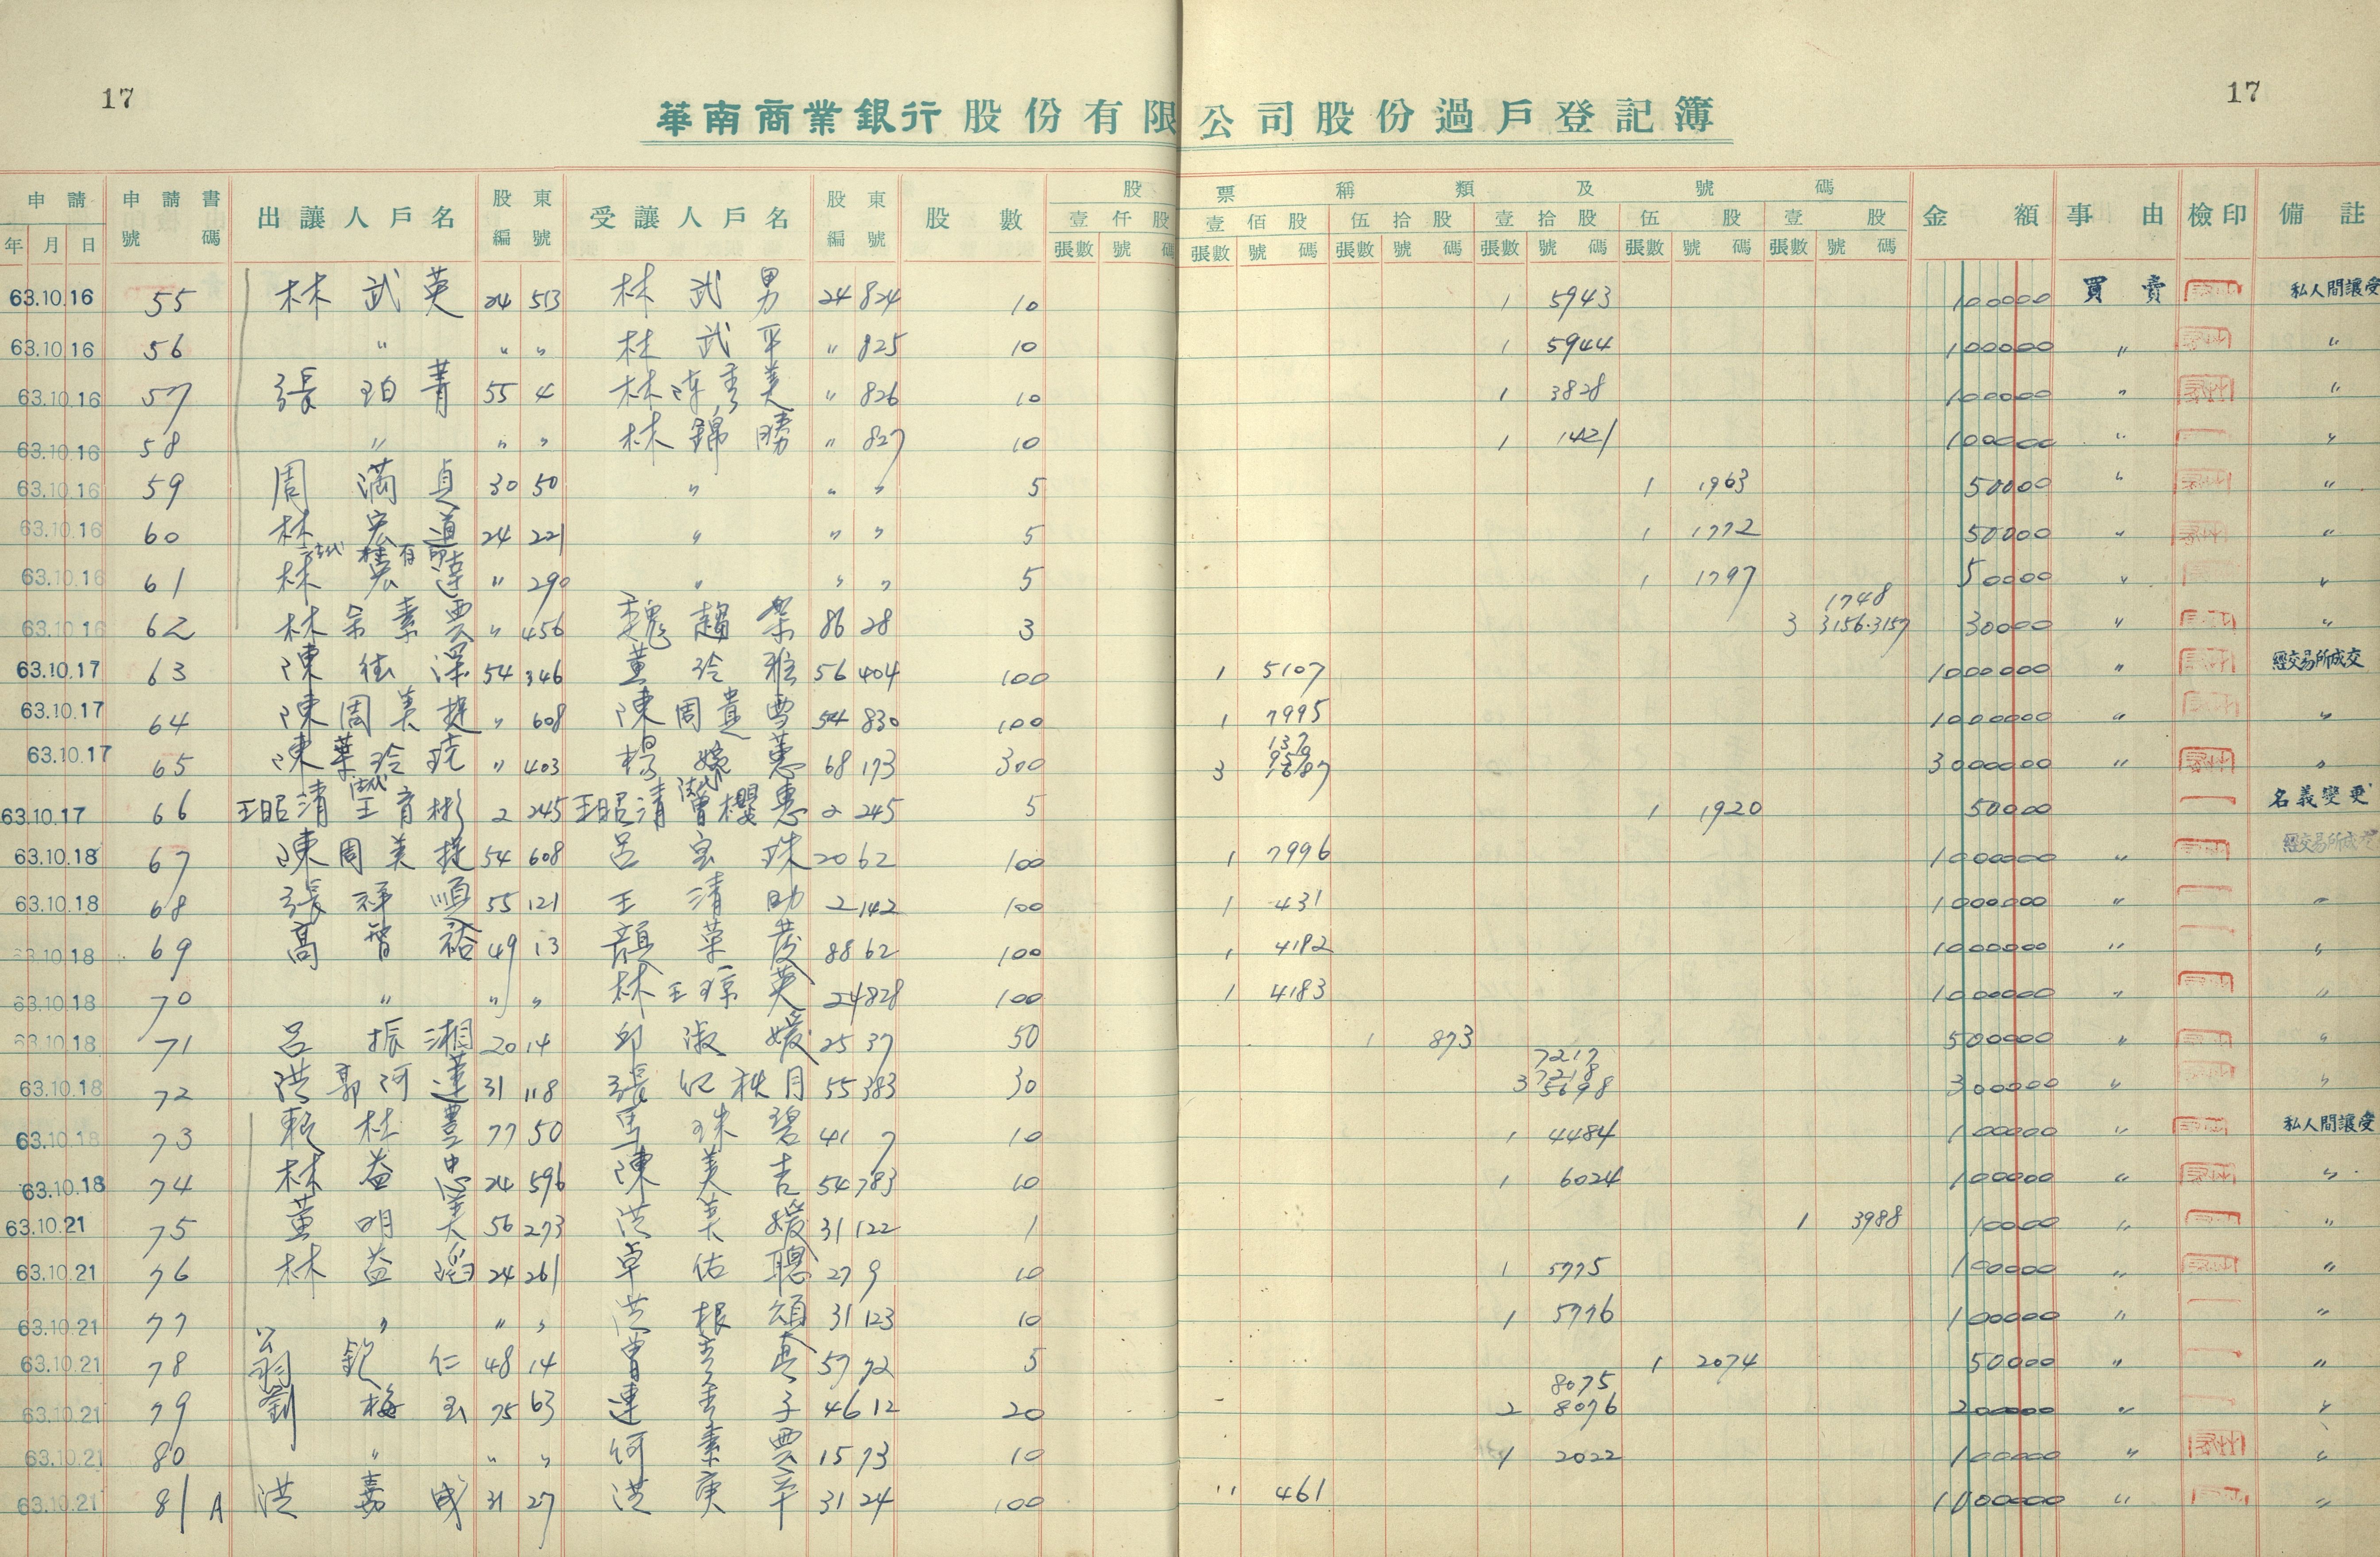 17 17
華南商業銀行股份有限公司股份過戶登記簿
申請 申請書 出讓人戶名 股東 受讓人戶名 股東 股數 股票種類及號碼 金額 事由 檢印 備註
年 月 日 號碼 編號 編號 壹仟股 壹佰股 伍拾股 壹拾股 伍股 壹股
張數 號碼 張數 號碼 張數 號碼 張數 號碼 張數 號碼 張數 號碼
63.10.16 55 林武英 24 513 林武男 24 824 10 1 5943 100000 買賣 私人間讓受
63.10.16 56 〃 〃 〃 林武平 〃 825 10 1 5944 100000 〃 〃
63.10.16 57 張珀菁 55 4 林陳秀美 〃 826 10 1 3828 100000 〃 〃
63.10.16 58 〃 〃 〃 林錦勝 〃 827 10 1 1421 100000 〃 〃
63.10.16 59 周滿貞 30 50 〃 〃 〃 5 1 1963 50000 〃 〃
63.10.16 60 林宏道 24 221 〃 〃 〃 5 1 1772 50000 〃 〃
63.10.16 61 林宏達 〃 290 〃 〃 〃 5 1 1797 50000 〃 〃
1748
63.10.16 62 林 素 〃 456 魏趙 86 28 3 3 3156.3157 30000 〃 〃
63.10.17 63 陳 深 54 346 董玲雅 56 404 100 1 5107 1000000 〃 經交易所成交
63.10.17 64 陳周美挺 〃 608 陳周 54 830 100 1 7995 1000000 〃 〃
63.10.17 65 陳葉玲 〃 403 楊婉蕙 68 173 300 3 3000000 〃 〃
法代 法代
63.10.17 66 王昭清 王育彬 2 245 王昭清 曾櫻惠 2 245 5 1 1920 50000 名義變更
63.10.18 67 陳周美挺 54 608 呂宝珠 20 62 100 1 7996 1000000 〃 經交易所成交
63.10.18 68 張 順 55 121 王清助 2 142 100 1 431 1000000 〃 〃
63.10.18 69 高智裕 49 13 顏菜 88 62 100 1 4182 1000000 〃 〃
63.10.18 70 〃 〃 〃 林王琼英 24 828 100 1 4183 1000000 〃 〃
63.10.18 71 呂振湘 20 14 邱淑媛 25 37 50 1 873 500000 〃 〃
7217
7218
63.10.18 72 洪郭阿蓮 31 118 張 秋月 55 383 30 3 5698 300000 〃 〃
63.10.18 73 賴林豊 77 50 馬珠碧 41 7 10 1 4484 100000 〃 私人間讓受
63.10.18 74 林益忠 24 596 陳美吉 54 783 10 1 6024 100000 〃 〃
63.10.21 75 董明美 56 273 洪英媛 31 122 1 1 3988 10000 〃 〃
63.10.21 76 林益滔 24 261 卓佑聰 27 9 10 1 5775 100000 〃 〃
63.10.21 77 〃 〃 〃 洪根頌 31 123 10 1 5776 100000 〃 〃
63.10.21 78 翁 仁 48 14 曾 真 57 72 5 1 2074 50000 〃 〃
8075
63.10.21 79 劉梅玉 75 63 連 子 46 12 20 2 8076 200000 〃 〃
63.10.21 80 〃 〃 〃 何素 15 73 10 1 2022 100000 〃 〃
63.10.21 81 A 洪嘉成 31 27 洪庚辛 31 24 100 〃 461 1000000 〃 〃